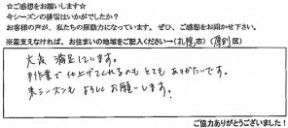 ☆ご感想をお願いします☆
今シーズンの排雪はいかがでしたか?
お客様の声が、私たちの原動力になっています。ぜひ、ご感想をお聞かせ下さい。
※差支えなければ、お住まいの地域をご記入ください→(札幌市)(厚別区)
大変満足しています。
手作業で仕上げてくれるのもとてもありがたいです。
来シーズンもよろしくお願いします!
ご協力ありがとうございました!